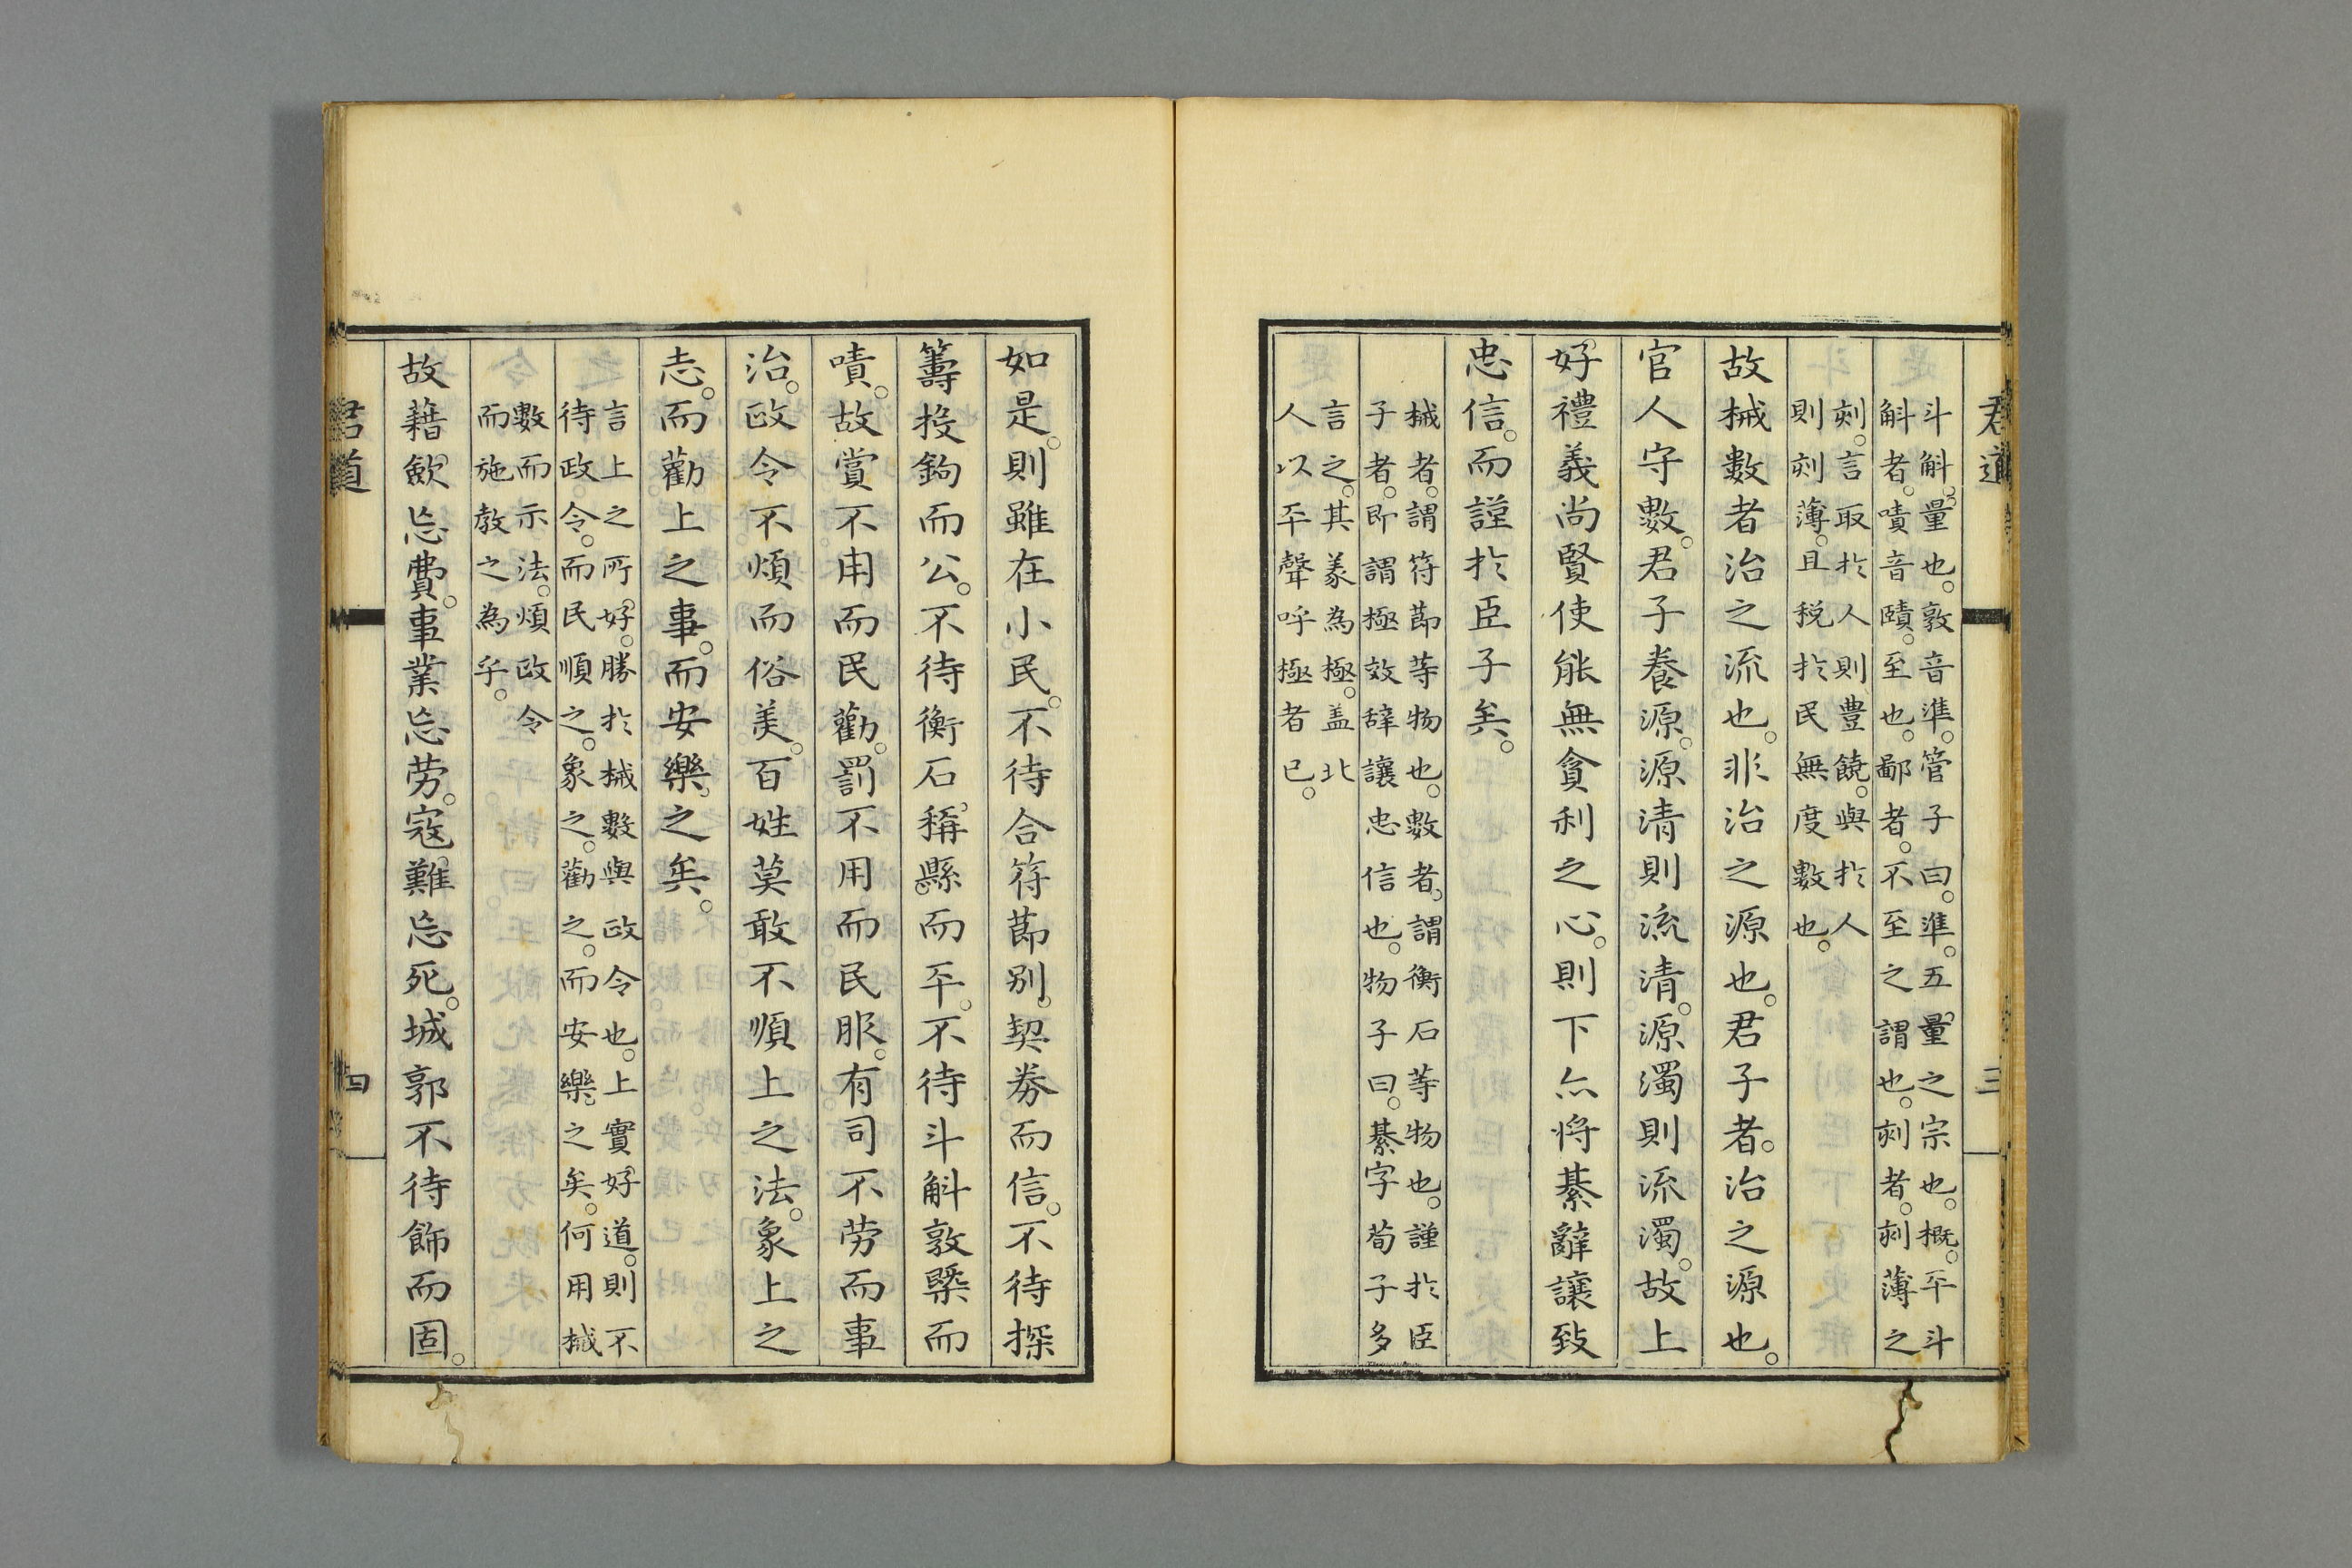 君道
三
斗斛。量也。敦音準。管子曰。準。五量之宗也。概。平斗
斛者。嘖音賾。至也。鄙者。不至之謂也。刻者。剥薄之
刻。言取於人則豊饒。與於人
則刻薄。且税於民無度數也。
故械數者治之流也。非治之源也。君子者。治之源也。
官人守數。君子養源。源清則流清。源濁則流濁。故上
好禮義尚賢使能無貪利之心。則下亦将綦辭讓致
忠信。而謹於臣子矣。
械者。謂符莭等物也。數者。謂衡石等物也。謹於臣
子者。即謂極效辞讓忠信也。物子曰。綦字荀子多
言之。其義為極。盖北
人以平聲呼極者已。
如是。則雖在小民。不待合符莭别。契券而信。不待探
籌投鉤而公。不待衡石稱縣。而平。不待斗斛敦槩而
嘖。故賞不用而民勸。罰不用而民服。有司不劳而事
治。政令不煩而俗美。百姓莫敢不順上之法。象上之
志。而勸上之事。而安樂之矣。
言上之所好。勝於械數與政令也。上實好道。則不
待政令。而民順之。象之。勸之。而安樂之矣。何用械
數而示法。煩政令
而施教之為乎。
故藉歛忘費。事業忘劳。寇難忘死。城郭不待飾而固。
君道
四